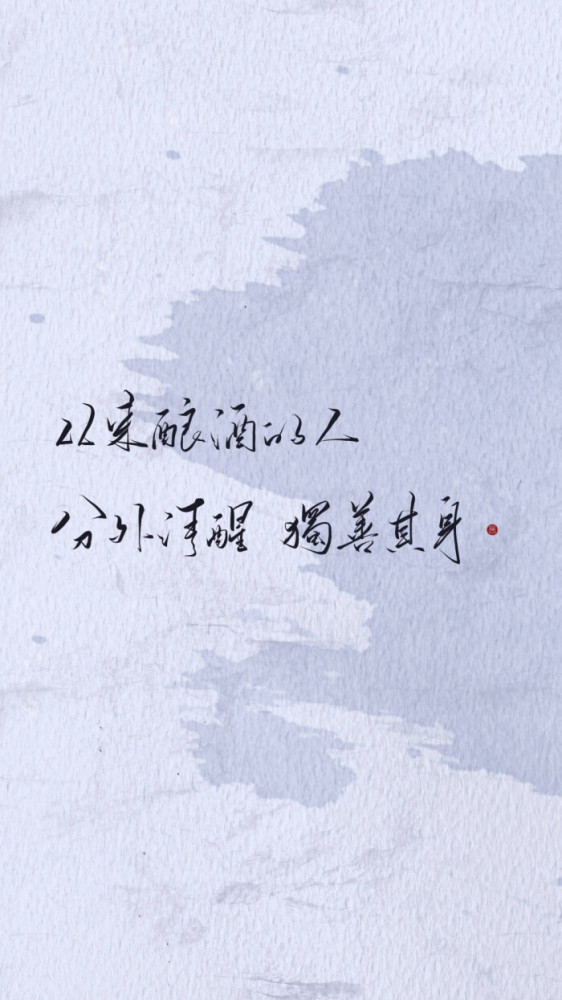 从来酿酒的人
分外清醒 獨善其身